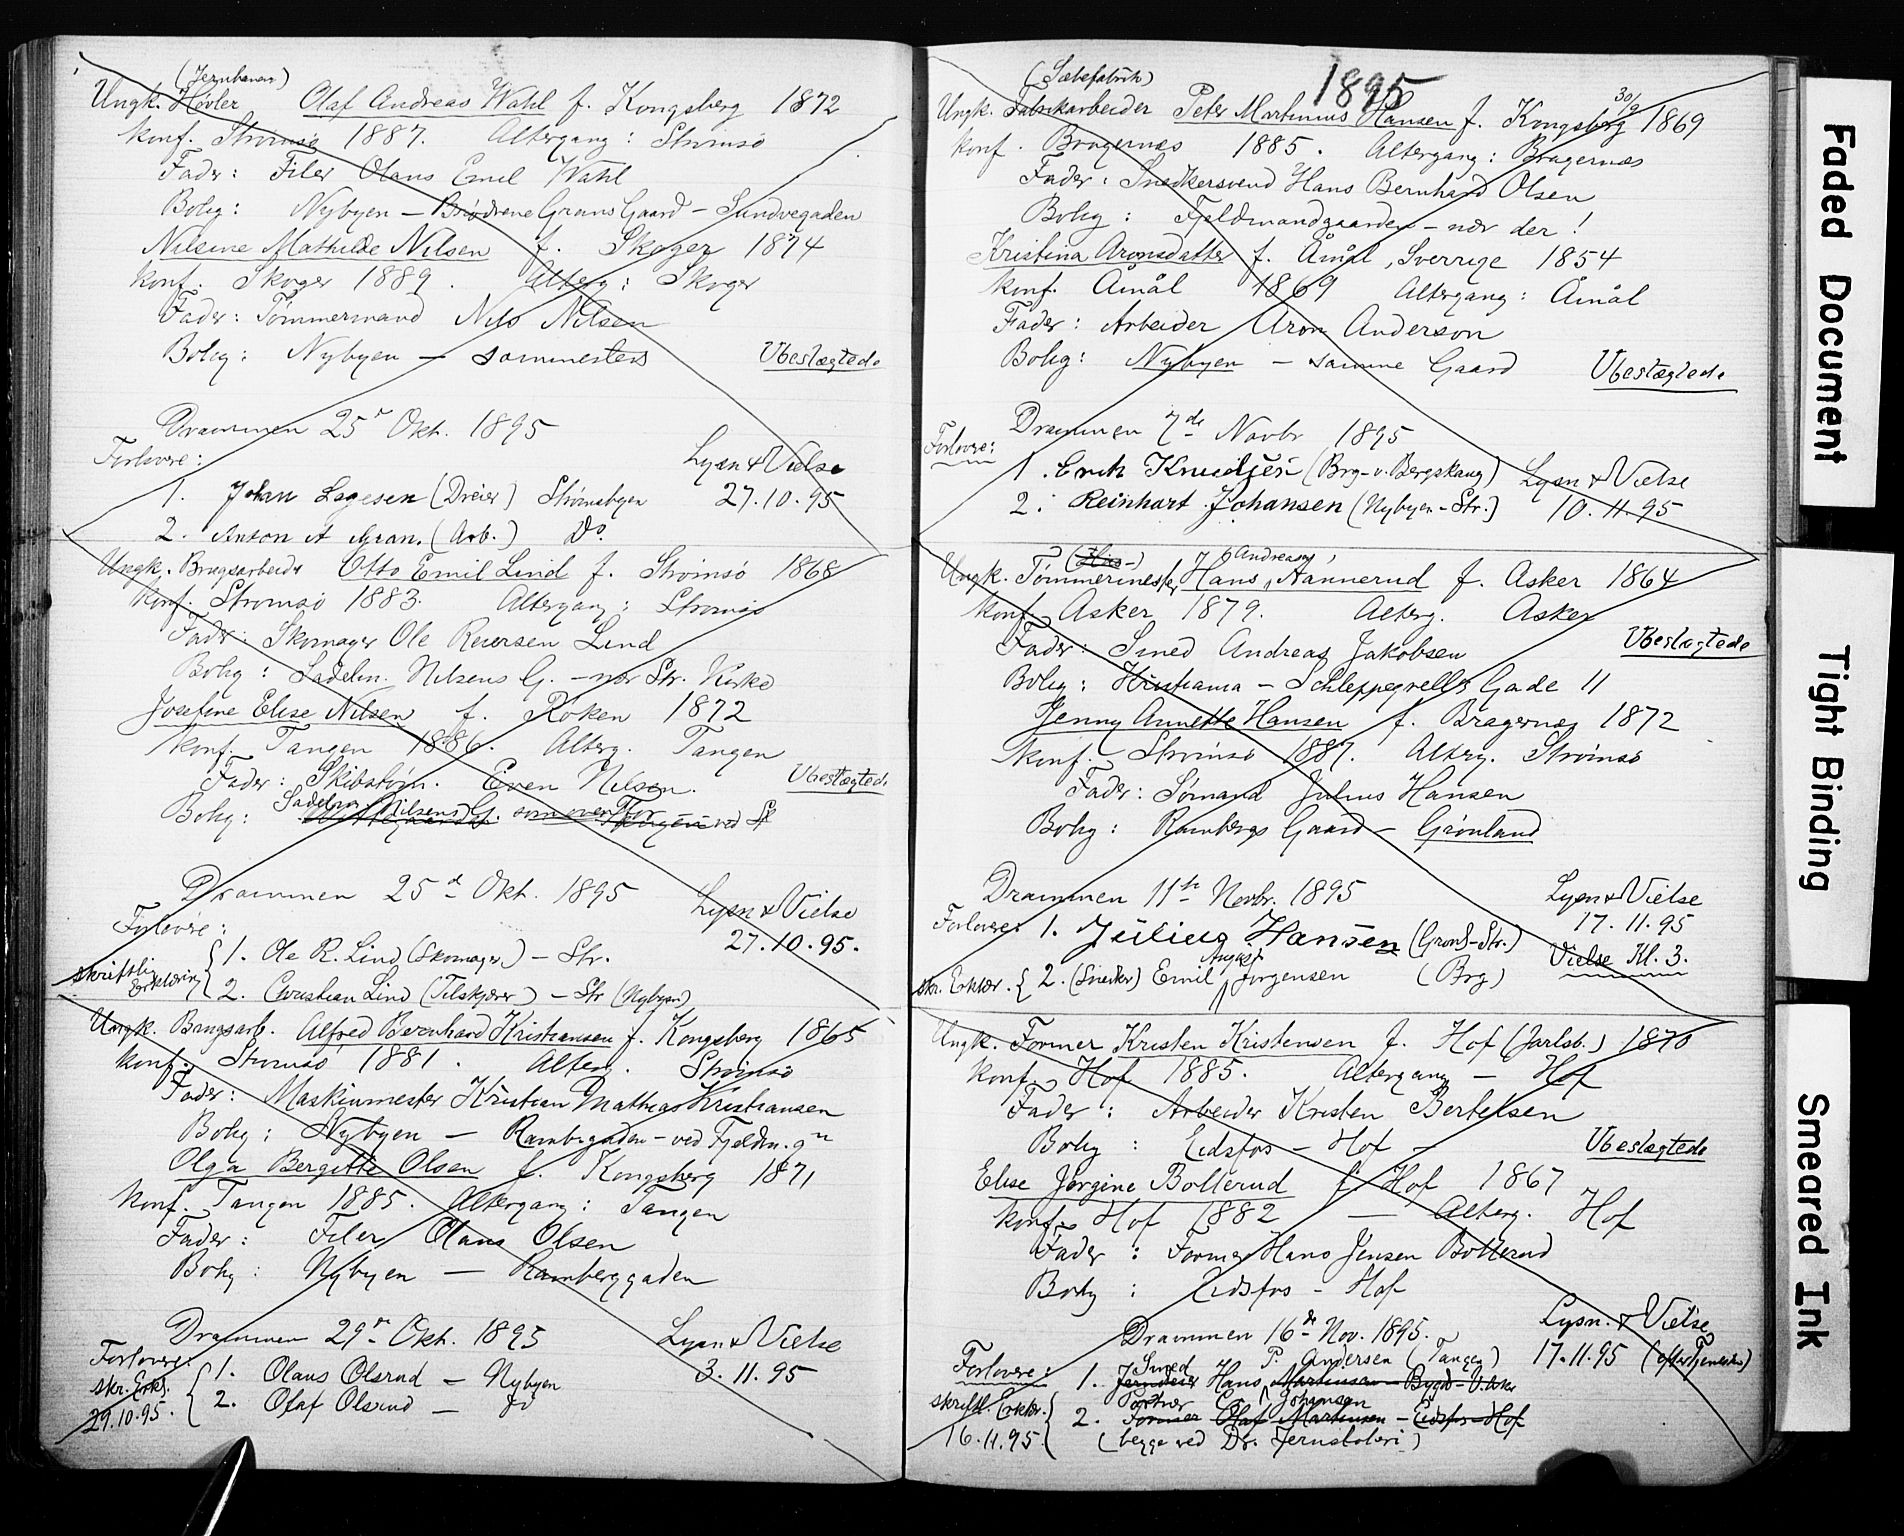 (Jernbanen)
Ungk. Høvler Olaf Andreas Wahl f. Kongsberg 1872
konf. Strømsø 1887. Altergang: Strømsø
Fader: Filer Olaus Emil Wahl
Bolig: Nybyen – Brødrene Grans Gaard – Sundvegaden
Nilsine Mathilde Nilsen f. Skoger 1874
konf. Skoger 1889. Alterg: Skoger
Fader: Tømmermand Nils Nilsen
Bolig: Nybyen – sammesteds Ubeslægtede
Drammen 25 Okt. 1895
Forlovere: Lysn & Vielse
1. Johan Lagesen (Dreier) Strømsbyen 27.10.95
2. Anton A Gran. (Arb.) Do.
Ungk. Brugsarbeide Otto Emil Lind f. Strømsø 1868
konf. Strømsø 1883. Altergang: Strømsø
Fader: Skomager Ole Reiersen Lind
Bolig: Sadelm. Nilsens G. – nær Str. Kirke
Josefine Elise Nilsen f. Røken 1872
konf. Tangen 1886. Alterg. Tangen
Fader: Skibstøm. Even Nilsen. Ubeslægtede
Bolig: Sadelm Nilsens G. som ovenfor
Drammen 25d Okt. 1895 Lysn & Vielse
Forlovere: 27.10.95.
1. Ole R. Lind (Skomager) – Str.
skriftlig Erklæring
2. Christian Lind (Tilskjærer) – Str (Nybyen)
Ungk. Brugsarb. Alfred Bernhard Kristiansen f. Kongsberg 1865
konf. Strømsø 1881. Alterg. Strømsø
Fader: Maskinmester Kristian Mathias Kristiansen
Bolig: Nybyen – Rambgaden – ved Fjeldm. gn
Olga Bergitte Olsen f. Kongsberg 1871
konf. Tangen 1885. Altergang: Tangen
Fader: Filer Olaus Olsen
Bolig: Nybyen – Ramberggaden
Drammen 29 Okt. 1895 Lysn & Vielse
Forlovere: 3.11.95
1. Olaus Olsrud – Nybyen
skr. Erkl.
2. Olaf Olsrud –
29.10.95.
1895
(Sæbefabrik)
30/9
Ungk. Fabrikarbeider Peter Martinius Hansen f. Kongsberg 1869
konf. Bragernæs 1885. Altergang: Bragernæs
Fader: Snedkersvend Hans Bernhard Olsen
Bolig: Fjeldmandgaarden – nær der!
Kristina Aronsdatter f. Åmål, Sverrige 1854
konf. Åmål 1869 Altergang: Åmål
Fader: Arbeider Aron Anderson
Bolig: Nybyen – samme Gaard Ubeslægtede
Drammen 7de Novbr 1895
Forlovere:
1. Erik Knudsen (Brg – v. Bergskaug) Lysn & Vielse
2. Reinhart Johansen (Nybyen – Str.) 10.11.95
Andreas
Ungk. Tømmermester Hans Hannerud f. Asker 1864
konf. Asker 1879. Alterg. Asker
Fader: Smed Andreas Jakobsen Ubeslægtede
Bolig: Kristiania – Schleppegrells Gade 11
Jenny Annette Hansen f. Bragernæs 1872
konf. Strømsø 1887. Alterg. Strømsø
Fader: Sømand Julius Hansen
Bolig: Rambergs Gaard – Grønland
Drammen 11te Novbr. 1895 Lysn & Vielse
17.11.95
Forlovere: 1. Julius Hansen (Grønl – Str.)
Vielse Kl. 3.
August
skr. Erklær. 2. (Snedker) Emil Jørgensen (Brg)
Ungk. Former Kristen Kristensen f. Hof (Jarlsb.) 1870
konf. Hof 1885. Altergang – Hof
Fader: Arbeider Kristen Bertelsen
Bolig: Eidsfos – Hof – Ubeslægtede
Elise Jørgine Bollerud f. Hof 1867
konf. Hof 1882 – Alterg. Hof
Fader: Former Hans Jensen Bollerud
Bolig: Eidsfos – Hof
Drammen 16de Nov. 1895. Lysn. & Vielse
17.11.95 (efter Tjenesten)
Forlovere: 1. Smed Hans P. Andersen (Tangen)
skriftl. Erklær.
2. Johansen
Former Olaf Martinsen – Eidsfos – Hof
16.11.95 (begge ved Dr. Jernstøberi)
Faded Document
Tight Binding
Smeared Ink